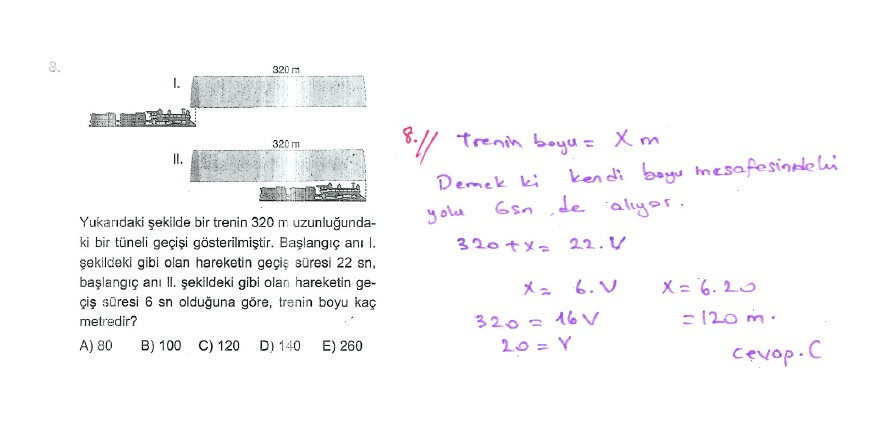 8.
320 m
I.
320 m
II.
Yukarıdaki şekilde bir trenin 320 m uzunluğunda-
ki bir tüneli geçişi gösterilmiştir. Başlangıç anı I.
şekildeki gibi olan hareketin geçiş süresi 22 sn,
başlangıç anı II. şekildeki gibi olan hareketin ge-
çiş süresi 6 sn olduğuna göre, trenin boyu kaç
metredir?
A) 80 B) 100 C) 120 D) 140 E) 260
8.// Trenin boyu = X m
Demek ki kendi boyu mesafesindeki
yolu 6sn de alıyor.
320+x= 22.V
x= 6.V X=6.20
320 = 16V =120 m.
20 = V
Cevap.C